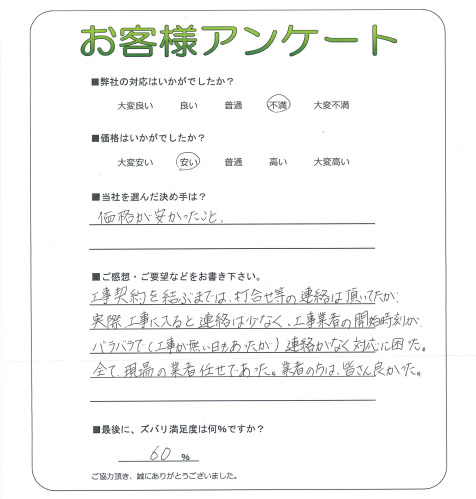 お客様アンケート
■弊社の対応はいかがでしたか？
大変良い 良い 普通 不満 大変不満
■価格はいかがでしたか？
大変安い 安い 普通 高い 大変高い
■当社を選んだ決め手は？
価格が安かったこと。
■ご感想・ご要望などをお書き下さい。
工事契約を結ぶまでは、打合せ等の連絡は頂いてたが、
実際工事に入ると連絡は少なく、工事業者の開始時刻が
バラバラで(工事が無い日もあったが)連絡がなく対応に困った。
全て、現場の業者任せであった。業者の方は、皆さん良かった。
■最後に、ズバリ満足度は何％ですか？
60 %
ご協力頂き、誠にありがとうございました。